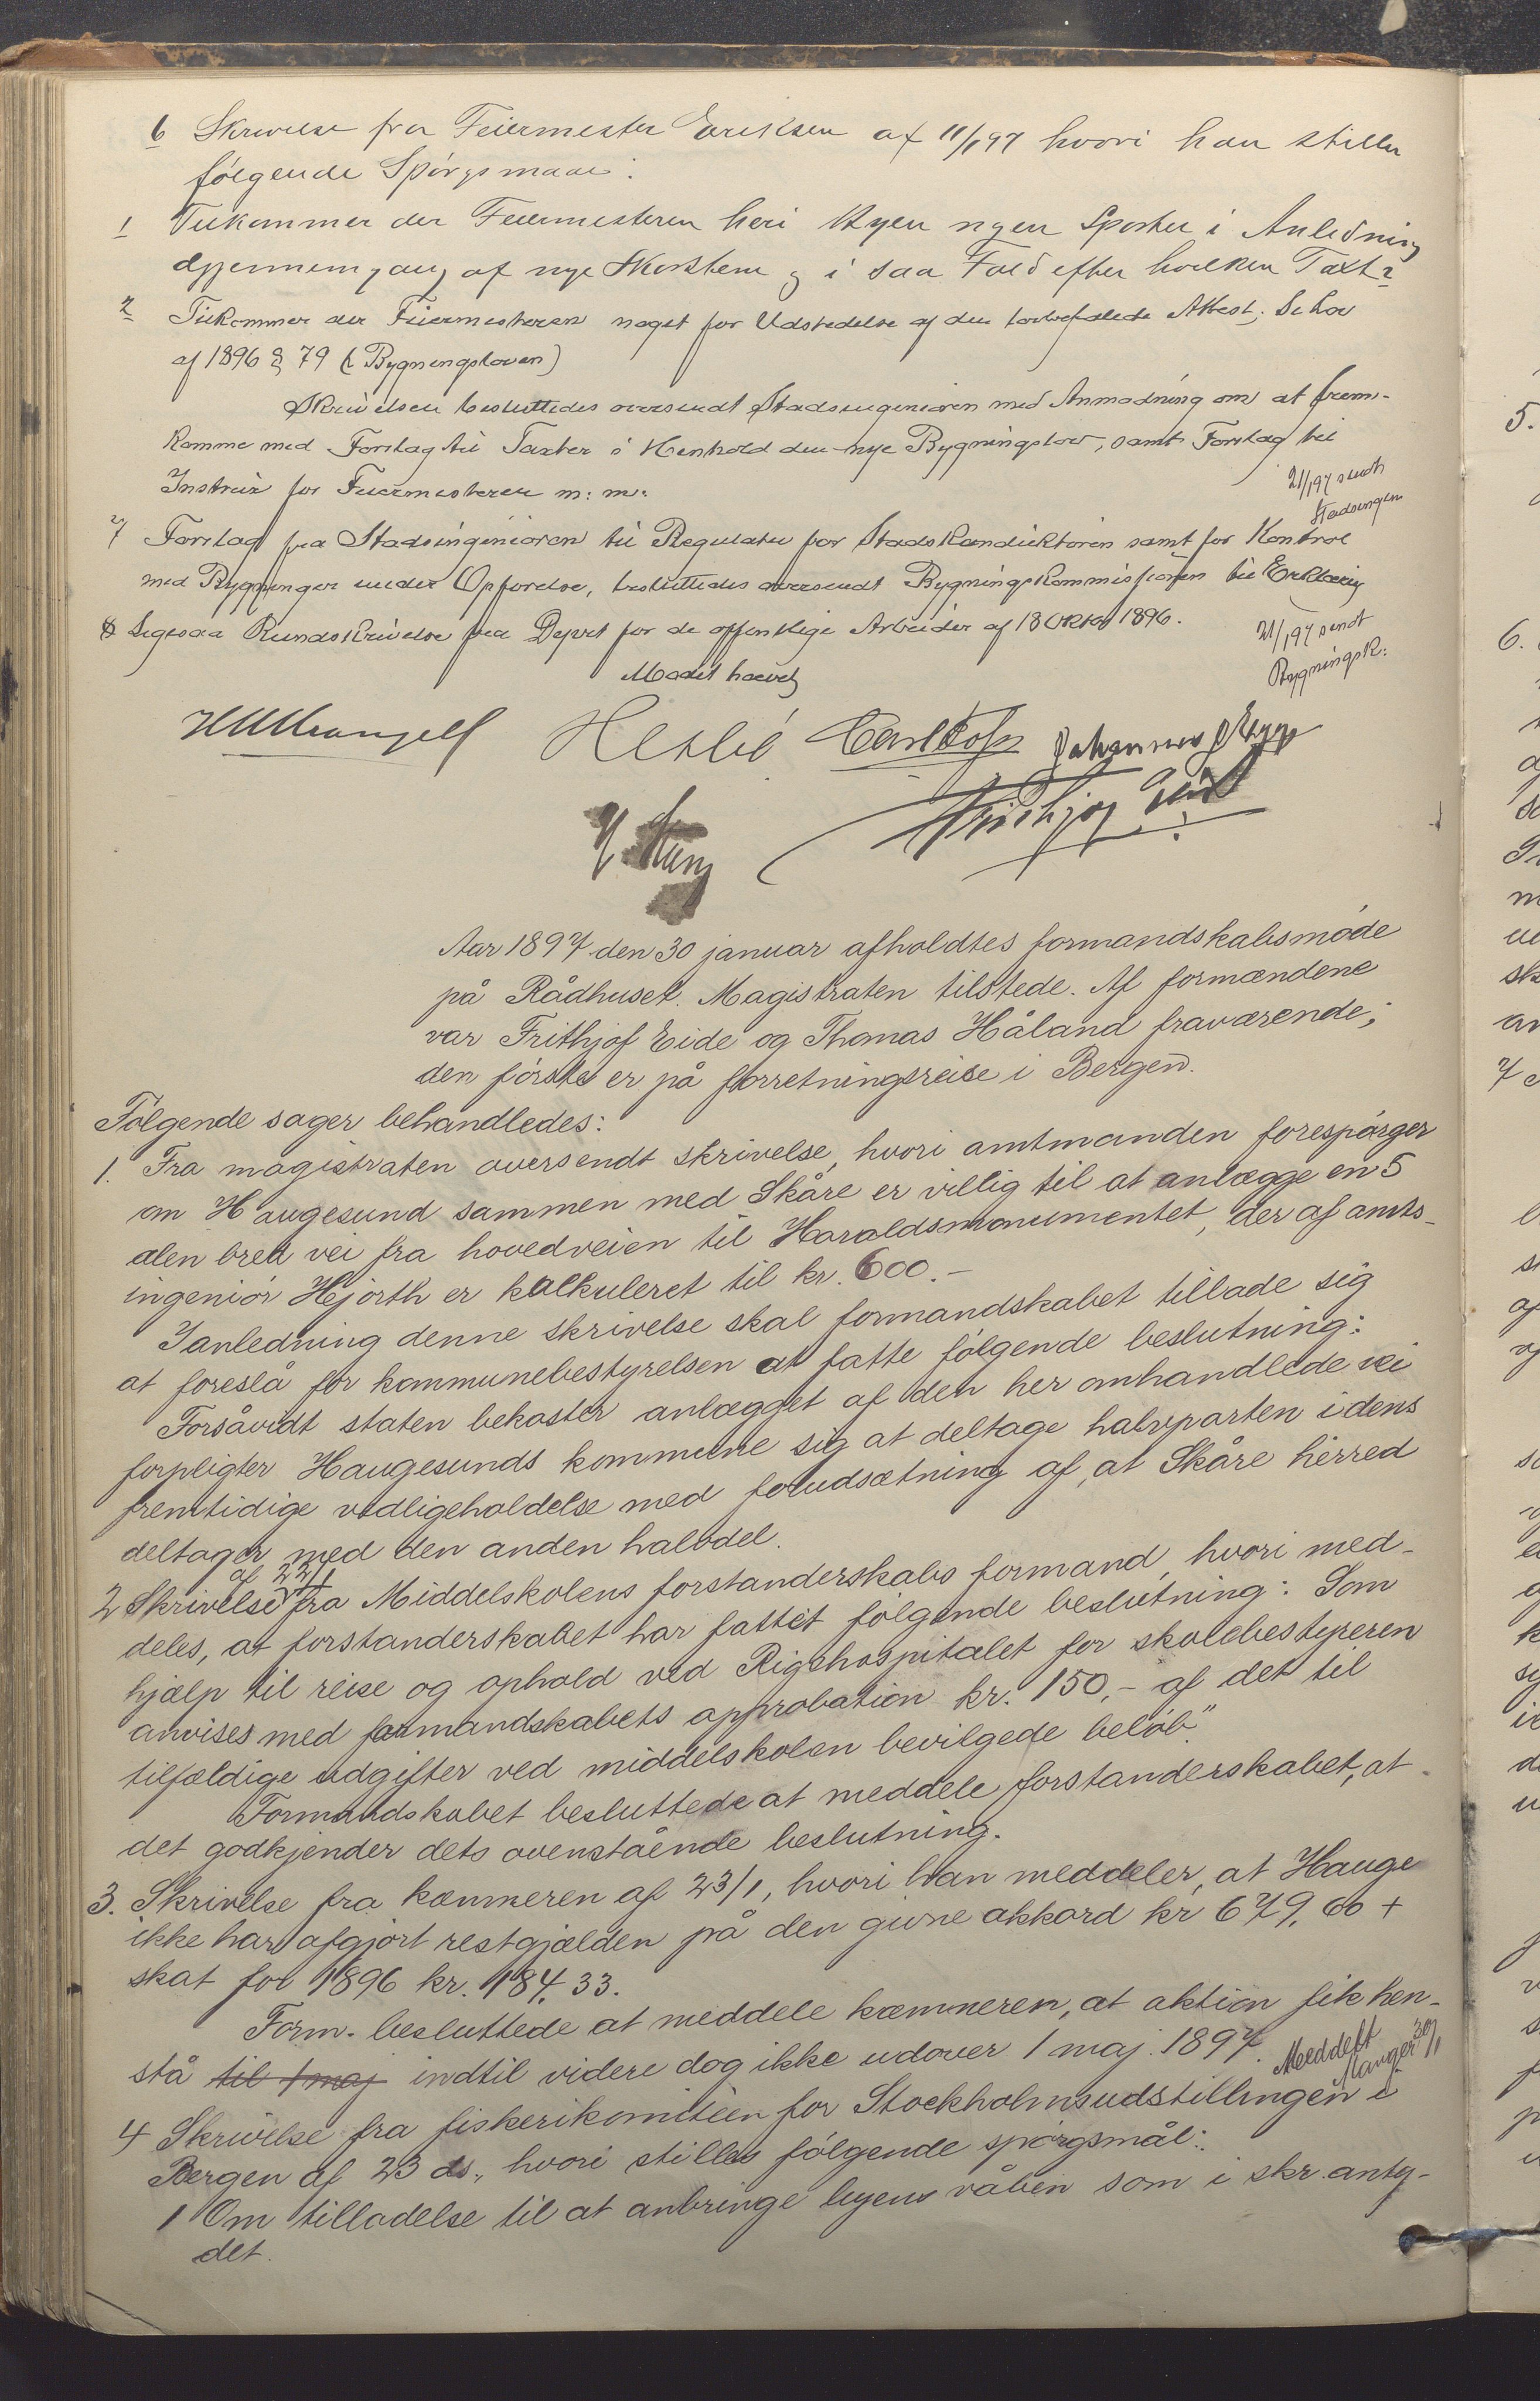 6 Skrivelse fra Feiermester Eriksen af 11/1 97 hvori han stiller
følgende Spørgsmaal:
1 Tilkommer der Feiermesteren heri Byen nogen Sportel i Anledning
Gjennemgang af nye Skorstene og i saa Fald efter hvilken Taxt?
2 Tilkommer der Feiermesteren noget for Udstedelse af den anbefalede Attest, Se Lov
af 1896 § 79 (Bygningsloven)
Skrivelsen besluttedes oversendt Stadsingeniøren med Anmodning om at frem-
komme med Forslag til Taxter i Henhold den nye Bygningslov, samt Forslag til
Instrux for Feiermesteren m: m:
21/1 97 sendt
Stadsingen
7 Forslag fra Stadsingeniøren til Regulativ for Stadskonduktøren samt for Kontrol
med Bygninger under Opførelse, besluttedes oversendt Bygningskommissionen til Erklæring
8 Ligesaa Rundskrivelse fra Depet for de offentlige Arbeider af 18 Oktbr 1896.
21/1 97 sendt
Bygningsk:
Mødet hævet
Johannes
Aar 1897 den 30 januar afholdtes formandskabsmøde
på Rådhuset. Magistraten tilstede. Af formændene
var Frithjof Eide og Thomas Håland fraværende;
den første er på forretningsreise i Bergen.
Følgende sager behandledes:
1. Fra magistraten oversendt skrivelse, hvori amtmanden forespørger
om Haugesund sammen med Skåre er villig til at anlægge en 5
alen bred vei fra hovedveien til Haraldsmonumentet, der af amts-
ingeniør Hjorth er kalkuleret til kr. 600.-
I anledning denne skrivelse skal formandskabet tillade sig
at foreslå for kommunebestyrelsen at fatte følgende beslutning:
Forsåvidt staten bekoster anlægget af den her omhandlede vei
forpligter Haugesunds kommune sig at deltage halvparten i dens
fremtidige vedligeholdelse med forudsætning af, at Skåre herred
deltager med den anden halvdel.
2 Skrivelse af 22/1 fra Middelskolens forstanderskabs formand, hvori med-
deles, at forstanderskabet har fattet følgende beslutning: Som
hjælp til reise og ophold ved Rigshospitalet for skolebestyreren
anvises med formandskabets approbation kr. 150,- af det til
tilfældige udgifter ved middelskolen bevilgede beløb."
Formandskabet besluttede at meddele forstanderskabet, at
det godkjender dets ovenstående beslutning.
3. Skrivelse fra kæmneren af 23/1, hvori han meddeler, at Hauge
ikke har afgjort restgjælden på den givne akkord kr 679,60 +
skat for 1896 kr. 184,33.
Form. besluttede at meddele kæmneren, at aktion fik hen-
stå til 1 maj indtil videre dog ikke udover 1 maj. 1897.
Meddelt
30/1
4 Skrivelse fra fiskerikomiteen for Stockholmsudstillingen i
Bergen af 23 ds., hvori stilles følgende spørgsmål:
1 Om tilladelse til at anbringe byens våben som i skr. anty-
det.